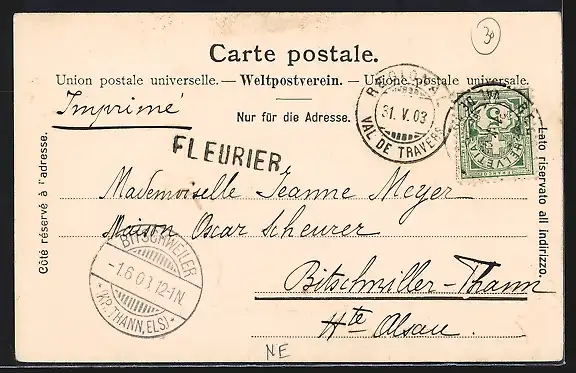 30
Carte postale.
Union postale universelle. — Weltpostverein. — Unione postale universale.
Imprimé
Nur für die Adresse.
RÉGIONAL
31. V. 03
VAL DE TRAVERS
HELVETIA
5
FLEURIER
Côté réservé à l'adresse.
Lato riservato all indirizzo.
Mademoiselle Jeanne Meyer
Maison Oscar Scheurer
Bitschwiller-Thann
Hte Alsau.
BITSCHWEILER
-1.6.03.12-1N.
* (KR. THANN, ELS.) *
NE